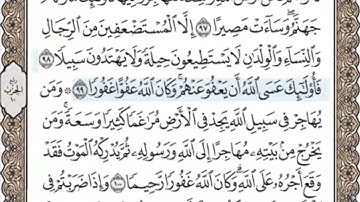 جَهَنَّمُ ۖ وَسَآءَتْ مَصِيرًا ۝٩٧ إِلَّا ٱلْمُسْتَضْعَفِينَ مِنَ ٱلرِّجَالِ
وَٱلنِّسَآءِ وَٱلْوِلْدَٰنِ لَا يَسْتَطِيعُونَ حِيلَةً وَلَا يَهْتَدُونَ سَبِيلًا ۝٩٨
فَأُو۟لَٰٓئِكَ عَسَى ٱللَّهُ أَن يَعْفُوَ عَنْهُمْ ۚ وَكَانَ ٱللَّهُ عَفُوًّا غَفُورًا ۝٩٩ ۞ وَمَن
يُهَاجِرْ فِى سَبِيلِ ٱللَّهِ يَجِدْ فِى ٱلْأَرْضِ مُرَٰغَمًا كَثِيرًا وَسَعَةً ۚ وَمَن
يَخْرُجْ مِنۢ بَيْتِهِۦ مُهَاجِرًا إِلَى ٱللَّهِ وَرَسُولِهِۦ ثُمَّ يُدْرِكْهُ ٱلْمَوْتُ فَقَدْ
وَقَعَ أَجْرُهُۥ عَلَى ٱللَّهِ ۗ وَكَانَ ٱللَّهُ غَفُورًا رَّحِيمًا ۝١٠٠ وَإِذَا ضَرَبْتُمْ فِى